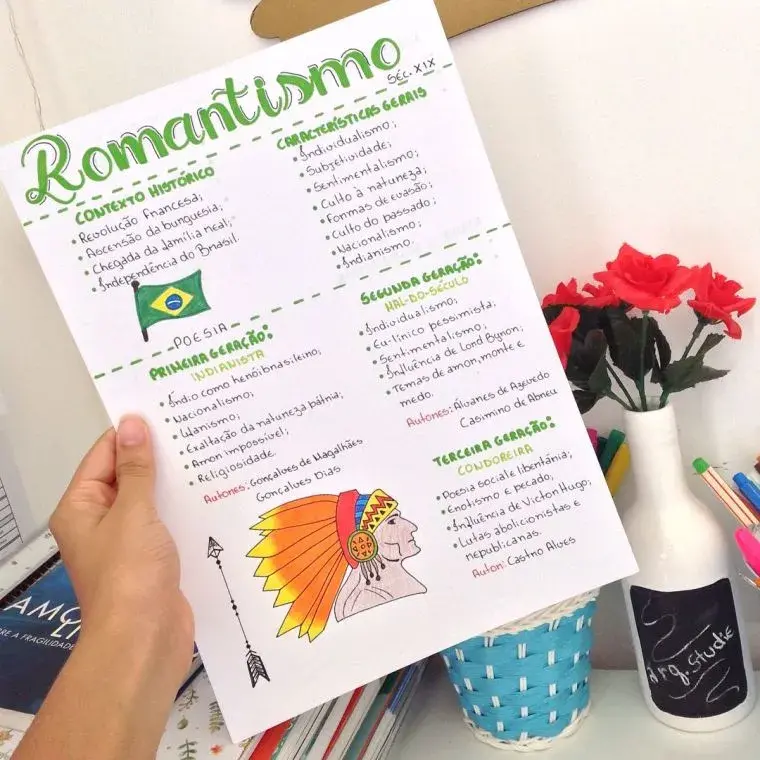 Romantismo
SÉC. XIX
CONTEXTO HISTÓRICO
• Revolução francesa;
• Ascensão da burguesia;
• Chegada da família real;
• Independência do Brasil.
CARACTERÍSTICAS GERAIS
• Individualismo;
• Subjetividade;
• Sentimentalismo;
• Culto à natureza;
• Formas de evasão;
• Culto do passado;
• Nacionalismo;
• Indianismo.
POESIA
PRIMEIRA GERAÇÃO:
INDIANISTA
• Índio como herói brasileiro;
• Nacionalismo;
• Ufanismo;
• Exaltação da natureza pátria;
• Amor impossível;
• Religiosidade.
Autores: Gonçalves de Magalhães
Gonçalves Dias
SEGUNDA GERAÇÃO:
MAL-DO-SÉCULO
• Individualismo;
• Eu-lírico pessimista;
• Sentimentalismo;
• Influência de Lord Byron;
• Temas de amor, morte e
medo.
Autores: Álvares de Azevedo
Casimiro de Abreu
TERCEIRA GERAÇÃO:
CONDOREIRA
• Poesia social e libertária;
• Erotismo e pecado;
• Influência de Victor Hugo;
• Lutas abolicionistas e
republicanas.
Autor: Castro Alves
A FRAGILIDADE
arq.studie